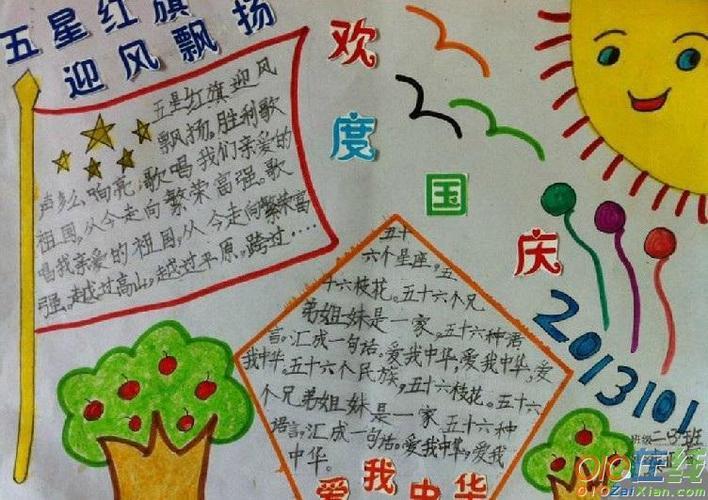 五星红旗
迎风飘扬
欢度国庆
五星红旗迎风
飘扬。胜利歌
声多么响亮,歌唱我们亲爱的
祖国,从今走向繁荣富强。歌
唱我亲爱的祖国,从今走向繁荣富
强。越过高山,越过平原。跨过……
五十
六个星座,五
十六枝花。五十六个兄
弟姐妹是一家。五十六种语
言,汇成一句话。爱我中华,爱我中华,爱
我中华。五十六个民族,五十六枝花。五十六
个兄弟姐妹是一家 五十六种
语言,汇成一句话。爱我中华,爱我
中华。
爱我中华
2013101
班级二
班
在线
010ZaiXian.Com